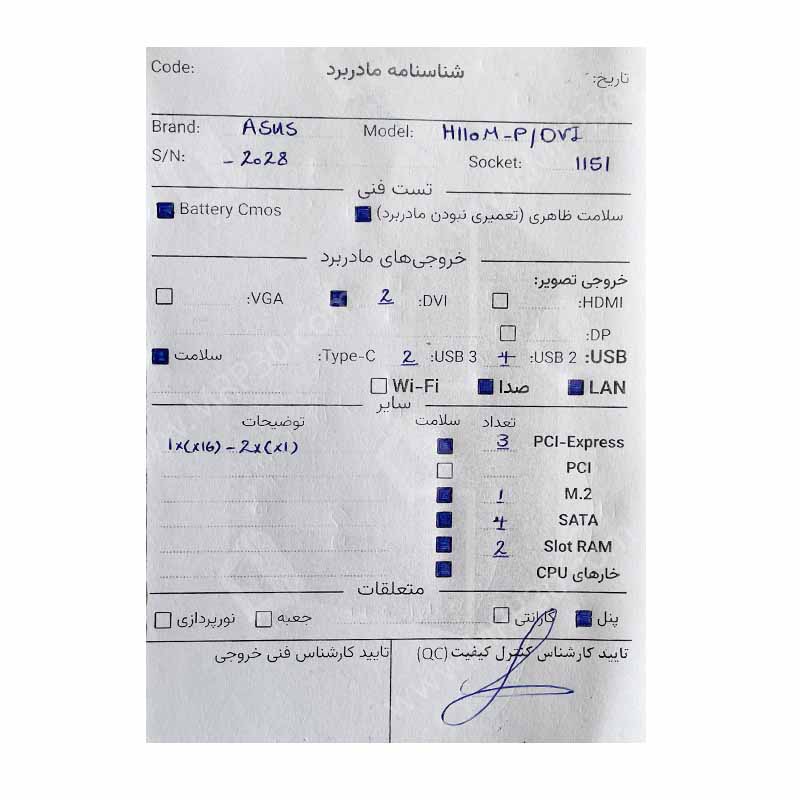 Code: شناسنامه مادربرد تاریخ:
Brand: ASUS Model: H110M-P/DVI
S/N: -2028 Socket: 1151
تست فنی
سلامت ظاهری (تعمیری نبودن مادربرد) Battery Cmos
خروجی‌های مادربرد
خروجی تصویر:
HDMI: DVI: 2 VGA:
DP:
USB: USB 2: 4 USB 3: 2 Type-C: سلامت
LAN صدا Wi-Fi
سایر
تعداد سلامت توضیحات
PCI-Express 3 1x(x16) - 2x(x1)
PCI
M.2 1
SATA 4
Slot RAM 2
خارهای CPU
متعلقات
پنل گارانتی جعبه نورپردازی
تایید کارشناس کنترل کیفیت (QC) تایید کارشناس فنی خروجی